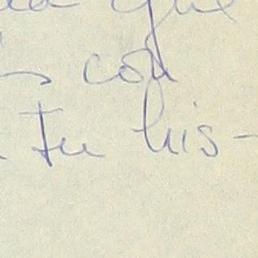 que
con
Tu his-